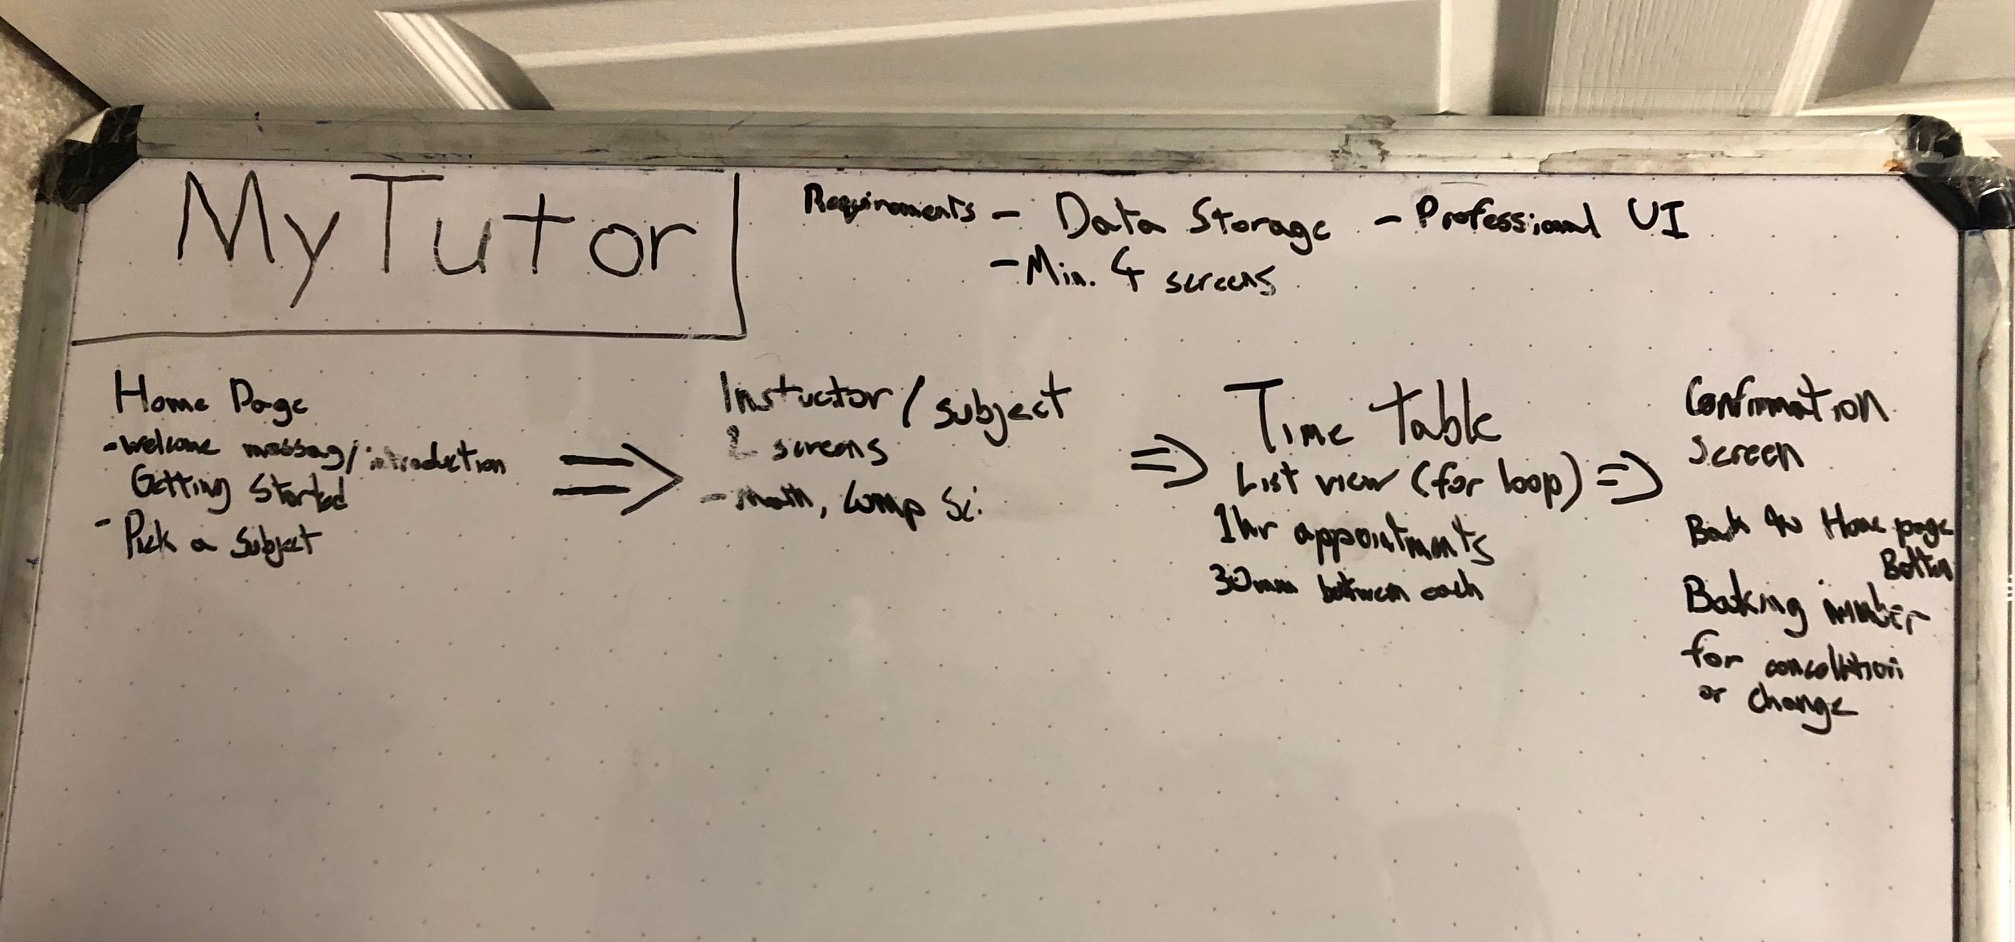 MyTutor
Requirements - Data Storage - Professional UI
- Min. 4 screens
Home Page
- Welcome messag/introduction
Getting Started
- Pick a Subject
⇒
Instuctor / subject
2 screens
- math, Comp Sci
⇒
Time table
List view (for loop)
1hr appointments
30min between each
⇒
Confirmation
screen
Back to Home page
Button
Booking number
for
or change